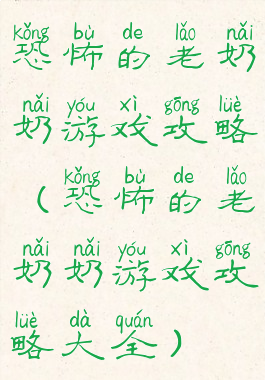 kǒng bù de lǎo nǎi
恐怖的老奶
nǎi yóu xì gōng lüè
奶游戏攻略
kǒng bù de lǎo
(恐怖的老
nǎi nǎi yóu xì gōng
奶奶游戏攻
lüè dà quán
略大全)